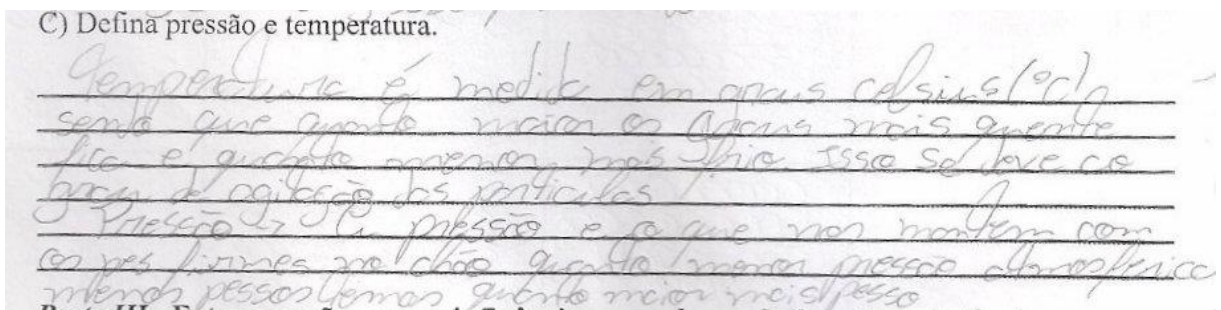 C) Defina pressão e temperatura.
Temperatura é medida em graus celsius (°C),
sendo que quanto maior os graus mais quente
fica e quanto menor mais frio Isso se deve ao
grau de agitação das particulas
Pressão → a pressão e o que nos mantem com
os pes firmes no chão quanto menor pressão atmosferica
menos pesso temos quanto maior mais pesso
Parte III